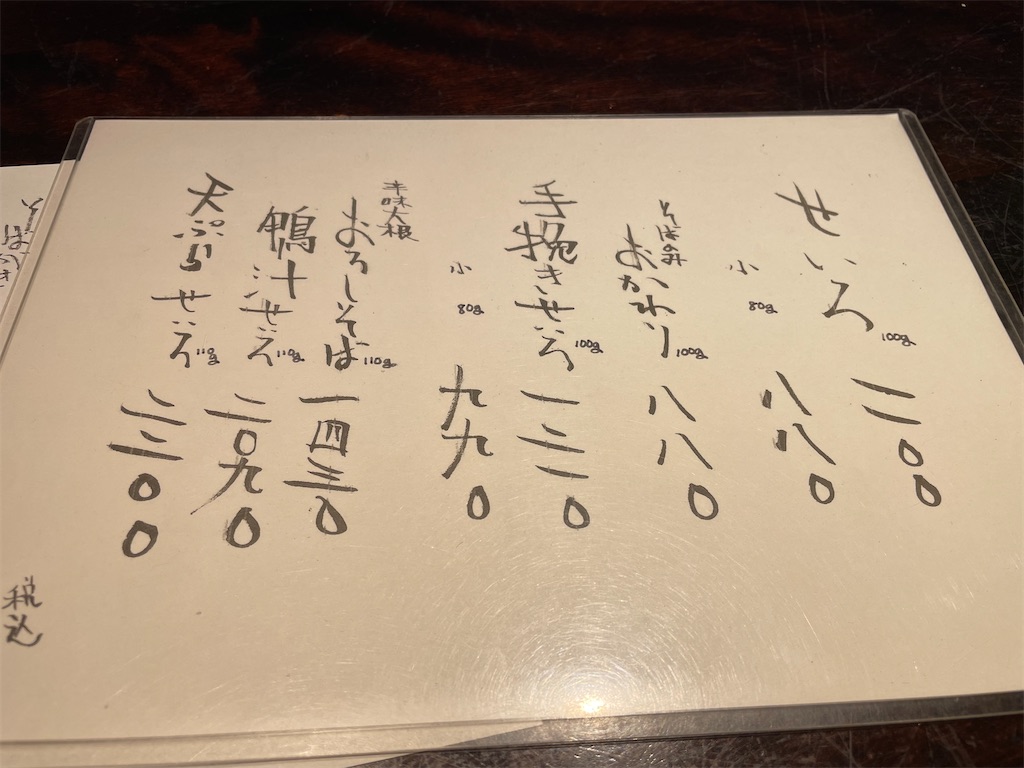 せいろ 100g 一一〇〇
小 80g 八八〇
そばのみ
おかわり 100g 八八〇
手挽きせいろ 100g 一二一〇
小 80g 九九〇
辛味大根
おろしそば 110g 一四三〇
鴨汁せいろ 110g 二〇九〇
天ぷらせいろ 110g 二二〇〇
税込